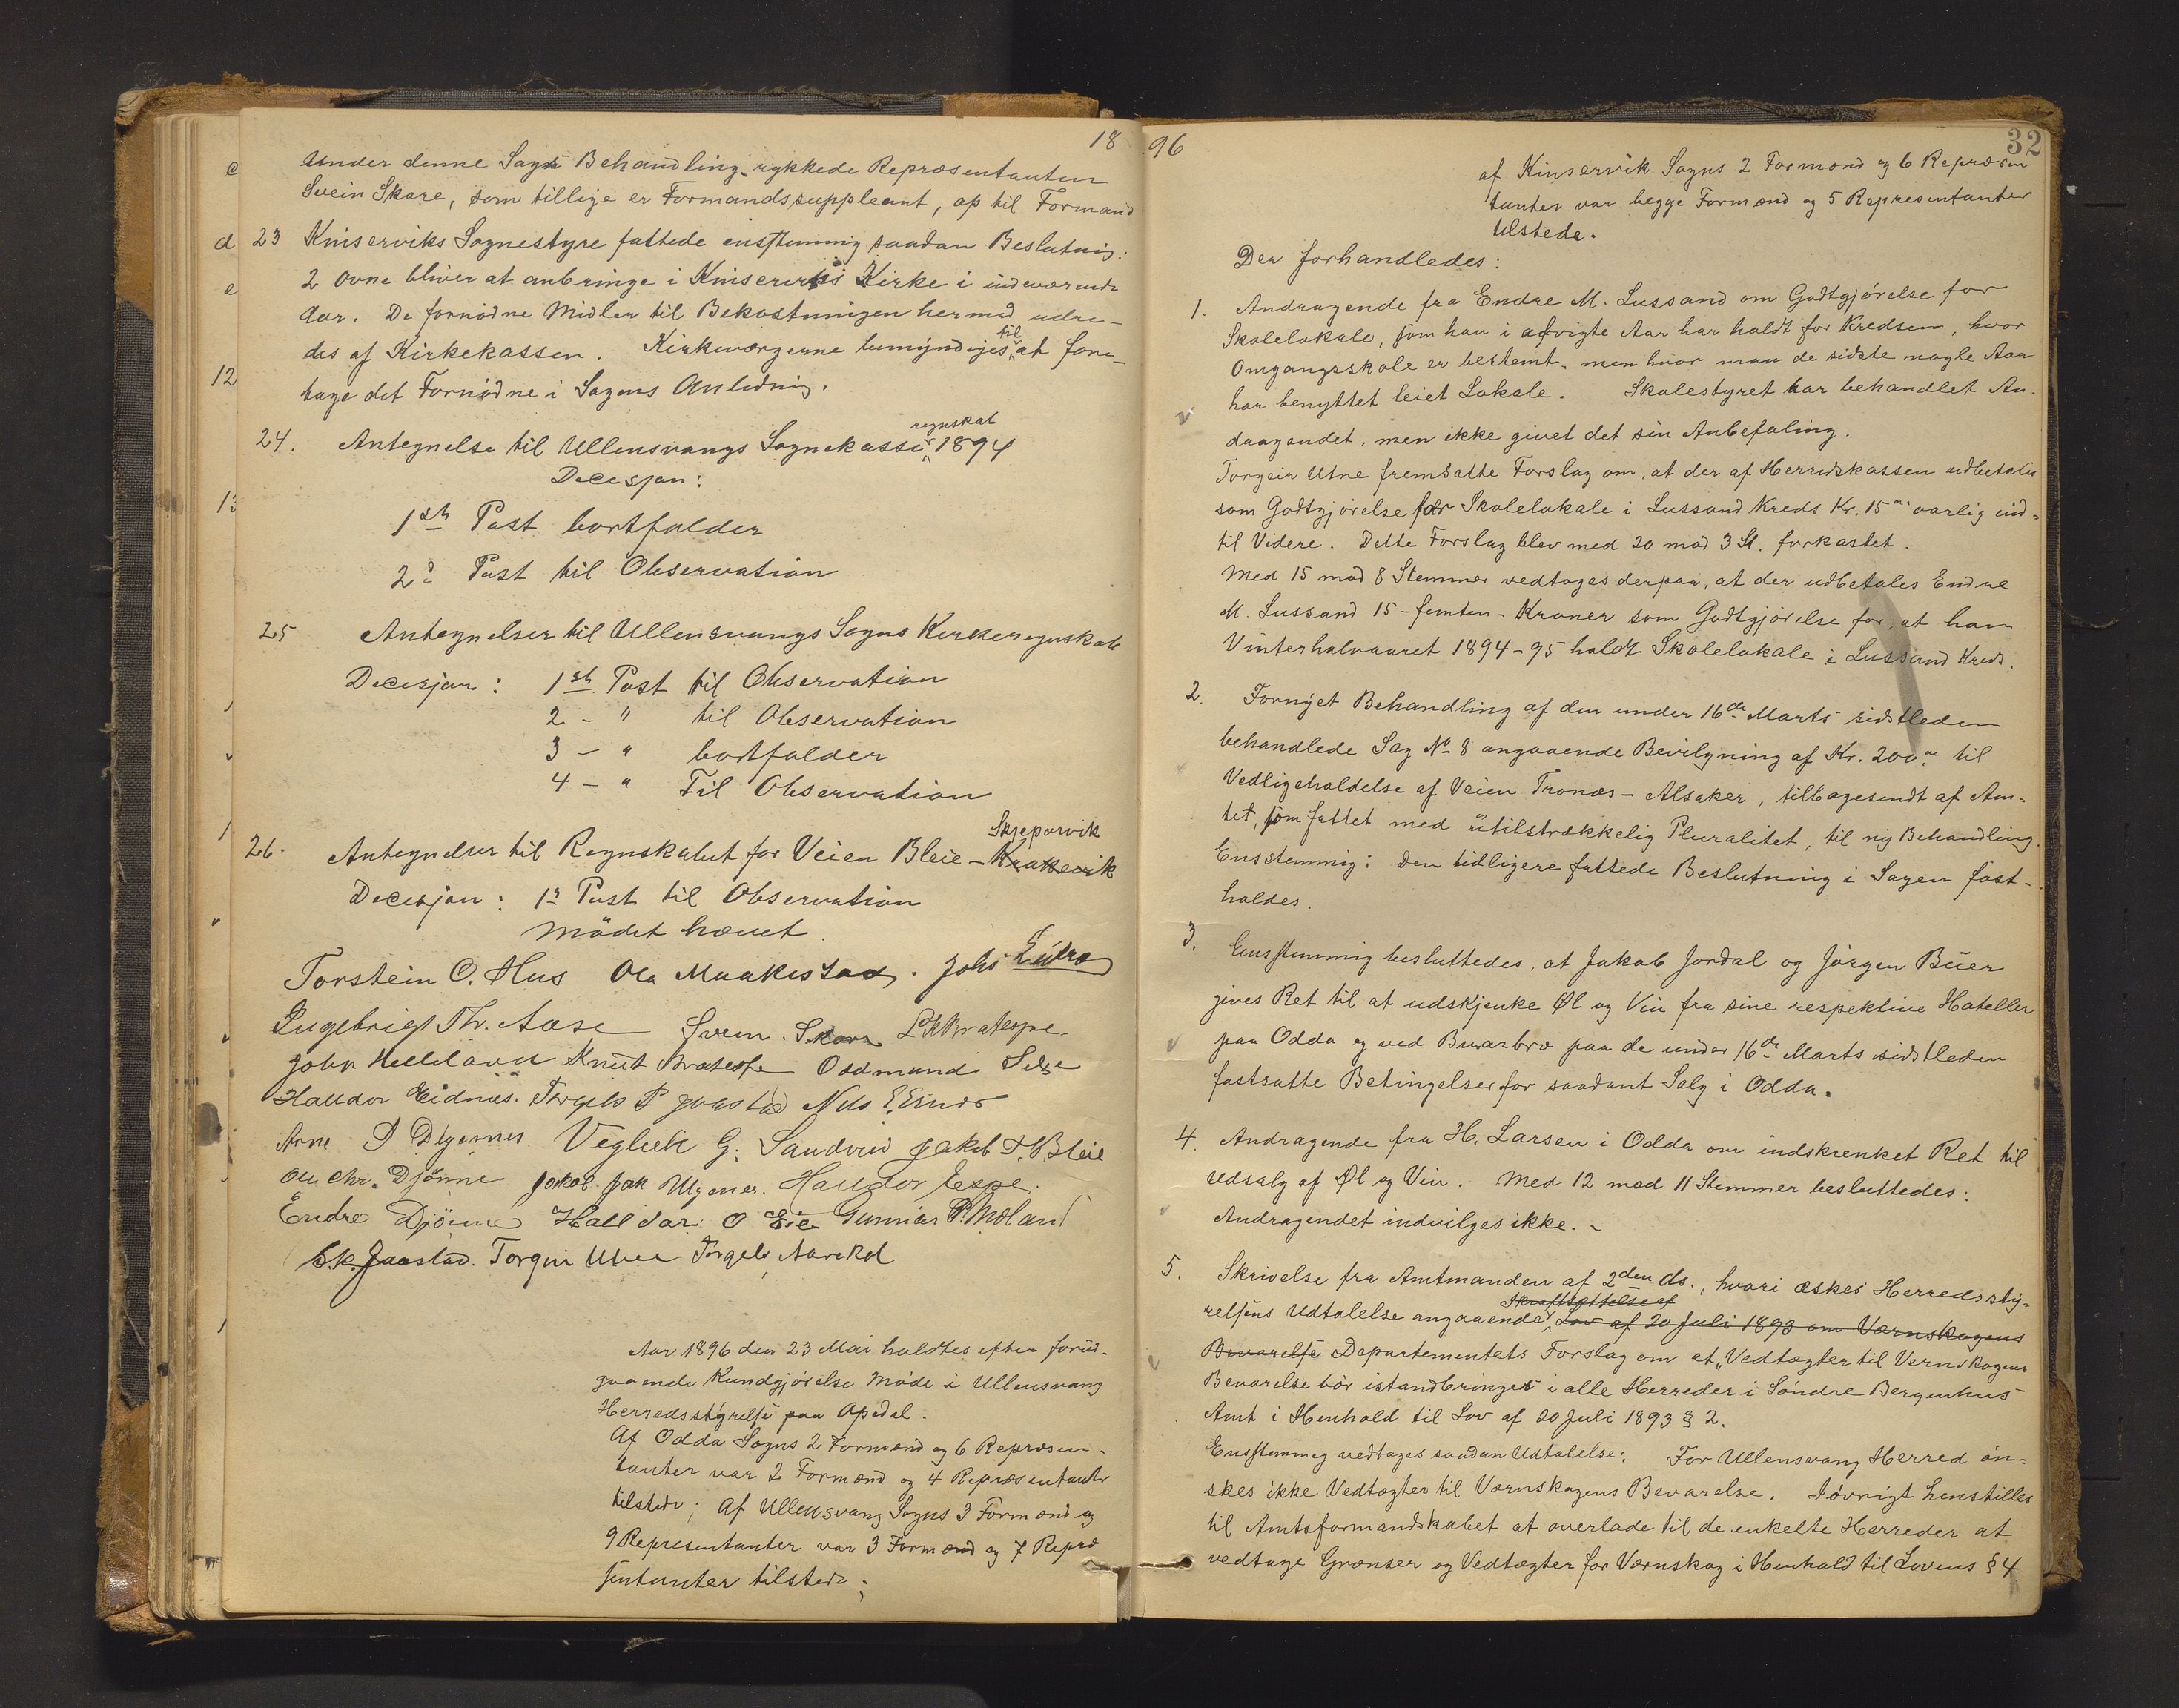 18
Under denne Sags Behandling rykkede Repræsentanten
Svein Skare, som tillige er Formandssuppleant, op til Formand
23 Kinserviks Sognestyre fattede enstemmig saadan Beslutning:
2 Ovne bliver at anbringe i Kinserviks Kirke i indeværende
Aar. De fornødne Midler til Bekostningen hermed udre-
des af Kirkekassen. Kirkeværgerne bemyndiges til at fore-
tage det Fornødne i Sagens Anledning.
24. Antegnelse til Ullensvangs Sognekasse regnskab 1894
Decisjon:
1ste Post bortfalder
2d Post til Observation
25 Antegnelser til Ullensvangs Sogns Kirkeregnskab
Decisjon: 1ste Post til Observation
2 - " til Observation
3 - " bortfalder
4 - " Til Observation
26. Antegnelser til Regnskabet for Veien Bleie - Krakevik Skjeparvik
Decisjon: 1ste Post til Observation
Mødet hævet.
Torstein O. Hus Ola Maakestad. Johs Eidna
Ingebrigt Th. Aase Sveen. Skare
John Helleland Knut Bratespe Oddmund Sexe
Haldor Eidnes. Torgils P Jaastad Nils E. Ernes
Arne P Digernes Vegleik G. Sandven Jakob T. Bleie
Ole Chr. Djønne Jakob Jak Ulgenes. Haldor Espe.
Endre Djønne Halldor O Eie Gunnar P. Moland
S.K. Jaastad. Torgeir Utne Torgels Aarekol
Aar 1896 den 23 Mai holdtes efter forud-
gaaende Kundgjørelse Møde i Ullensvang
Herredsstyrelse paa Apedal.
Af Odda Sogns 2 Formænd og 6 Repræsen-
tanter var 2 Formænd og 4 Repræsentanter
tilstede; Af Ullensvang Sogns 3 Formænd og
9 Repræsentanter var 3 Formænd og 7 Repræ
sentanter tilstede;
96
32
af Kinservik Sogns 2 Formænd og 6 Repræsen
tanter var begge Formænd og 5 Representanter
tilstede.
Der forhandledes:
1. Andragende fra Endre M. Lussand om Godtgjørelse for
Skolelokale, som han i afvigte Aar har holdt for Kredsen, hvor
Omgangsskole er bestemt, men hvor man de sidste nogle Aar
har benyttet leiet Lokale. Skolestyret har behandlet An-
dragendet, men ikke givet det sin Anbefaling.
Torgeir Utne fremsatte Forslag om, at der af Herredskassen udbetales
som Godtgjørelse for Skolelokale i Lussand Kreds Kr. 15 aarlig ind-
til Videre. Dette Forslag blev med 20 mod 3 St. forkastet.
Med 15 mod 8 Stemmer vedtoges derpaa, at der udbetales Endre
M. Lussand 15 - femten - Kroner som Godtgjørelse for, at han
Vinterhalvaaret 1894-95 holdt Skolelokale i Lussand Kreds.
2. Fornyet Behandling af den under 16de Marts sidstleden
behandlede Sag No 8 angaaende Bevilgning af Kr. 200 til
Vedligeholdelse af Veien Tronæs - Alsaker, tilbagesendt af Am-
tet, som fattet med utilstrækkelig Pluralitet, til ny Behandling.
Enstemmig: Den tidligere fattede Beslutning i Sagen fast-
holdes.
3. Enstemmig besluttedes, at Jakob Jordal og Jørgen Buer
gives Ret til at udskjenke Øl og Vin fra sine respektive Hoteller
paa Odda og ved Buarbræ paa de under 16de Marts sidstleden
fastsatte Betingelser for saadant Salg i Odda.
4. Andragende fra H. Larsen i Odda om indskrenket Ret til
Udsalg af Øl og Vin. Med 12 mod 11 Stemmer besluttedes:
Andragendet indvilges ikke. -
5. Skrivelse fra Amtmanden af 2den ds., hvori æskes Herredssty-
relsens Udtalelse angaaende Ikraftsættelse af Lov af 20 Juli 1893 om Værnskogens
Bevarelse Departementets Forslag om at "Vedtægter til Vernskogens
Bevarelse bør istandbringes i alle Herreder i Søndre Bergenhus
Amt i Henhold til Lov af 20 Juli 1893 § 2.
Enstemmig vedtoges saadan Udtalelse: For Ullensvang Herred øn-
skes ikke Vedtægter til Værnskogens Bevarelse. Iøvrigt henstilles
til Amtsformandskabet at overlade til de enkelte Herreder at
vedtage Grænser og Vedtægter for Værnskog i Henhold til Lovens § 4